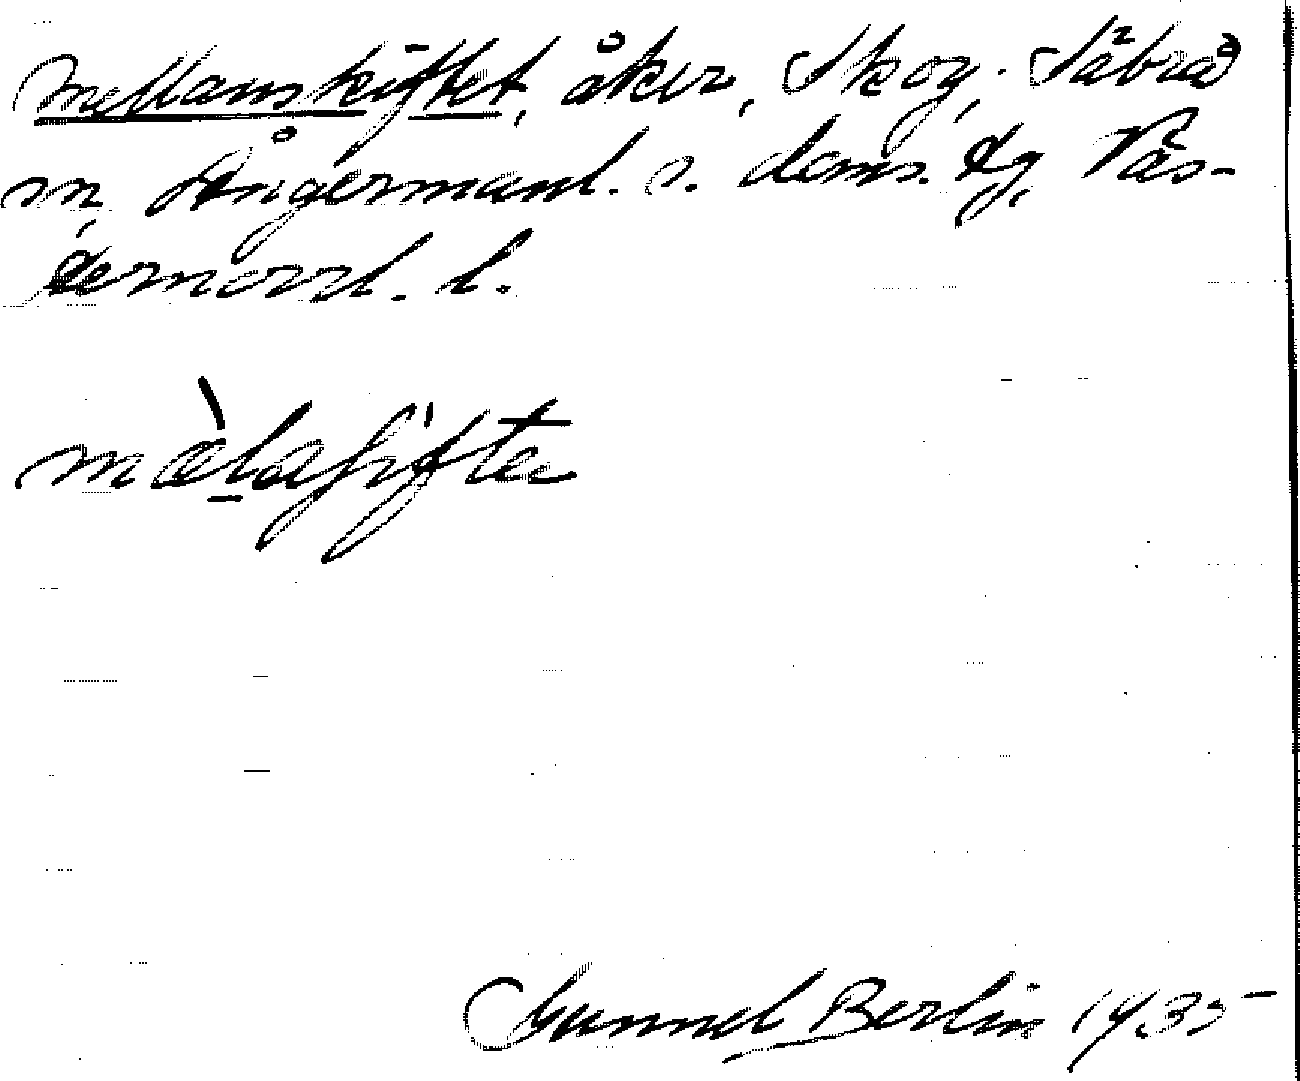 Mellanskiftet, åker, Skog, Säbrå
sn, Ångermanl. s. doms. dg, Väs-
ternorrl. l.
mèlaʃìftɐ
Gunnel Berlin 1935